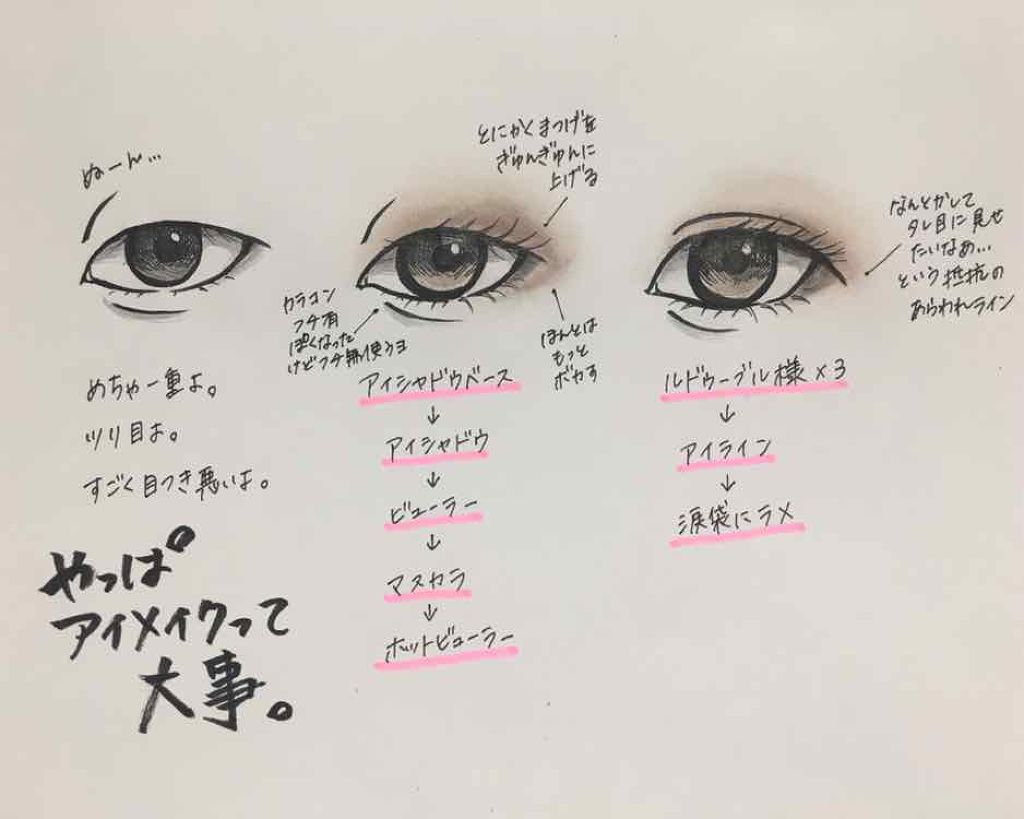 ぬーん…
めちゃ一重よ。
ツリ目よ。
すごく目つき悪いよ。
やっぱ
アイメイクって
大事。
とにかくまつげを
ぎゅんぎゅんに
上げる
カラコン
フチ有
ぽくなった
けどフチ無使うヨ
ほんとは
もっと
ボカす
アイシャドウベース
↓
アイシャドウ
↓
ビューラー
↓
マスカラ
↓
ホットビューラー
なんとかして
タレ目に見せ
たいなぁ…
という抵抗の
あらわれライン
ルドゥーブル様×3
↓
アイライン
↓
涙袋にラメ